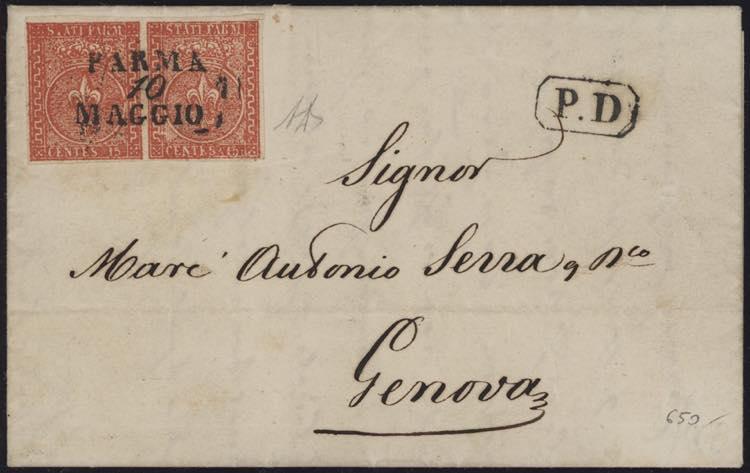 S.ATI PARM STATI PARM
PARMA
10
MAGGIO
CENTES. 15 CENTES. 15
P.D
Signor
Marc' Antonio Serra q.
Genova
650